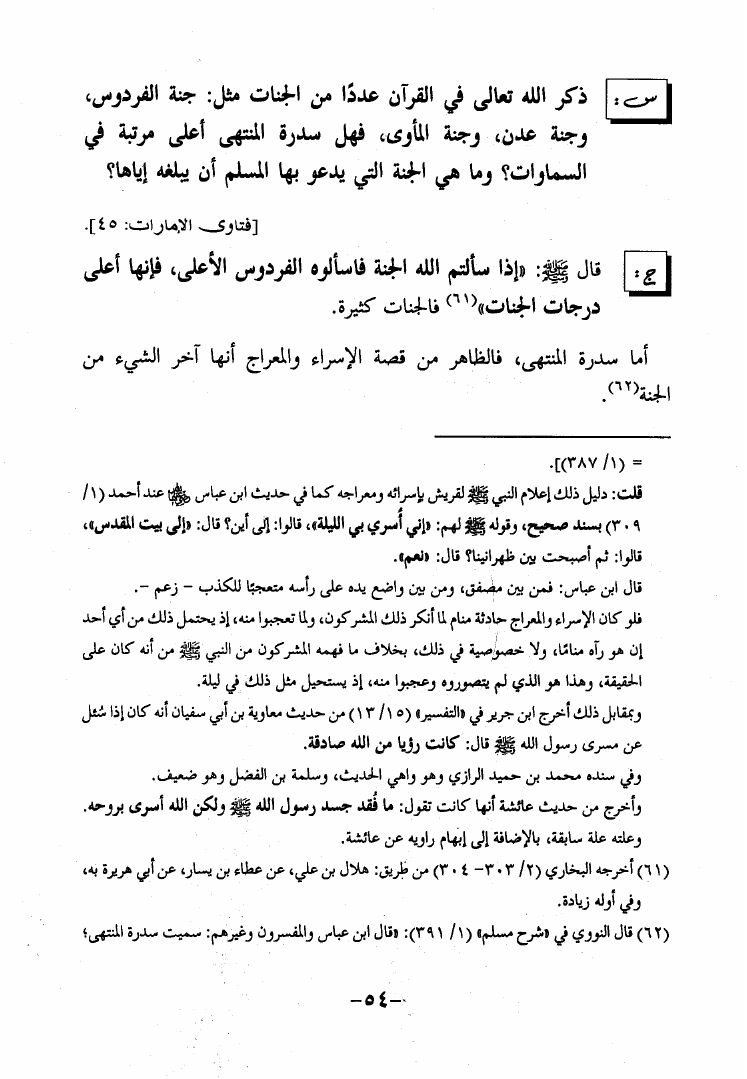 س: ذكر الله تعالى في القرآن عددًا من الجنات مثل: جنة الفردوس،
وجنة عدن، وجنة المأوى، فهل سدرة المنتهى أعلى مرتبة في
السماوات؟ وما هي الجنة التي يدعو بها المسلم أن يبلغه إياها؟
[فتاوى الإمارات: ٤٥].
ج: قال ﷺ: «إذا سألتم الله الجنة فاسألوه الفردوس الأعلى، فإنها أعلى
درجات الجنات»(٦١) فالجنات كثيرة.
أما سدرة المنتهى، فالظاهر من قصة الإسراء والمعراج أنها آخر الشيء من
الجنة(٦٢).
= (١/ ٣٨٧)].
قلت: دليل ذلك إعلام النبي ﷺ لقريش بإسرائه ومعراجه كما في حديث ابن عباس رضي الله عنهما عند أحمد (١/
٣٠٩) بسند صحيح، وقوله ﷺ لهم: «إني أُسري بي الليلة»، قالوا: إلى أين؟ قال: «إلى بيت المقدس»،
قالوا: ثم أصبحت بين ظهرانينا؟ قال: «نعم».
قال ابن عباس: فمن بين مصفق، ومن بين واضع يده على رأسه متعجبًا للكذب – زعم –.
فلو كان الإسراء والمعراج حادثة منام لما أنكر ذلك المشركون، ولما تعجبوا منه، إذ يحتمل ذلك من أي أحد
إن هو رآه منامًا، ولا خصوصية في ذلك، بخلاف ما فهمه المشركون من النبي ﷺ من أنه كان على
الحقيقة، وهذا هو الذي لم يتصوروه وعجبوا منه، إذ يستحيل مثل ذلك في ليلة.
وبمقابل ذلك أخرج ابن جرير في «التفسير» (١٥/ ١٣) من حديث معاوية بن أبي سفيان أنه كان إذا سُئل
عن مسرى رسول الله ﷺ قال: كانت رؤيا من الله صادقة.
وفي سنده محمد بن حميد الرازي وهو واهي الحديث، وسلمة بن الفضل وهو ضعيف.
وأخرج من حديث عائشة أنها كانت تقول: ما فُقد جسد رسول الله ﷺ ولكن الله أسرى بروحه.
وعلته علة سابقة، بالإضافة إلى إبهام راويه عن عائشة.
(٦١) أخرجه البخاري (٢/ ٣٠٣– ٣٠٤) من طريق: هلال بن علي، عن عطاء بن يسار، عن أبي هريرة به،
وفي أوله زيادة.
(٦٢) قال النووي في «شرح مسلم» (١/ ٣٩١): «قال ابن عباس والمفسرون وغيرهم: سميت سدرة المنتهى؛
–٥٤–